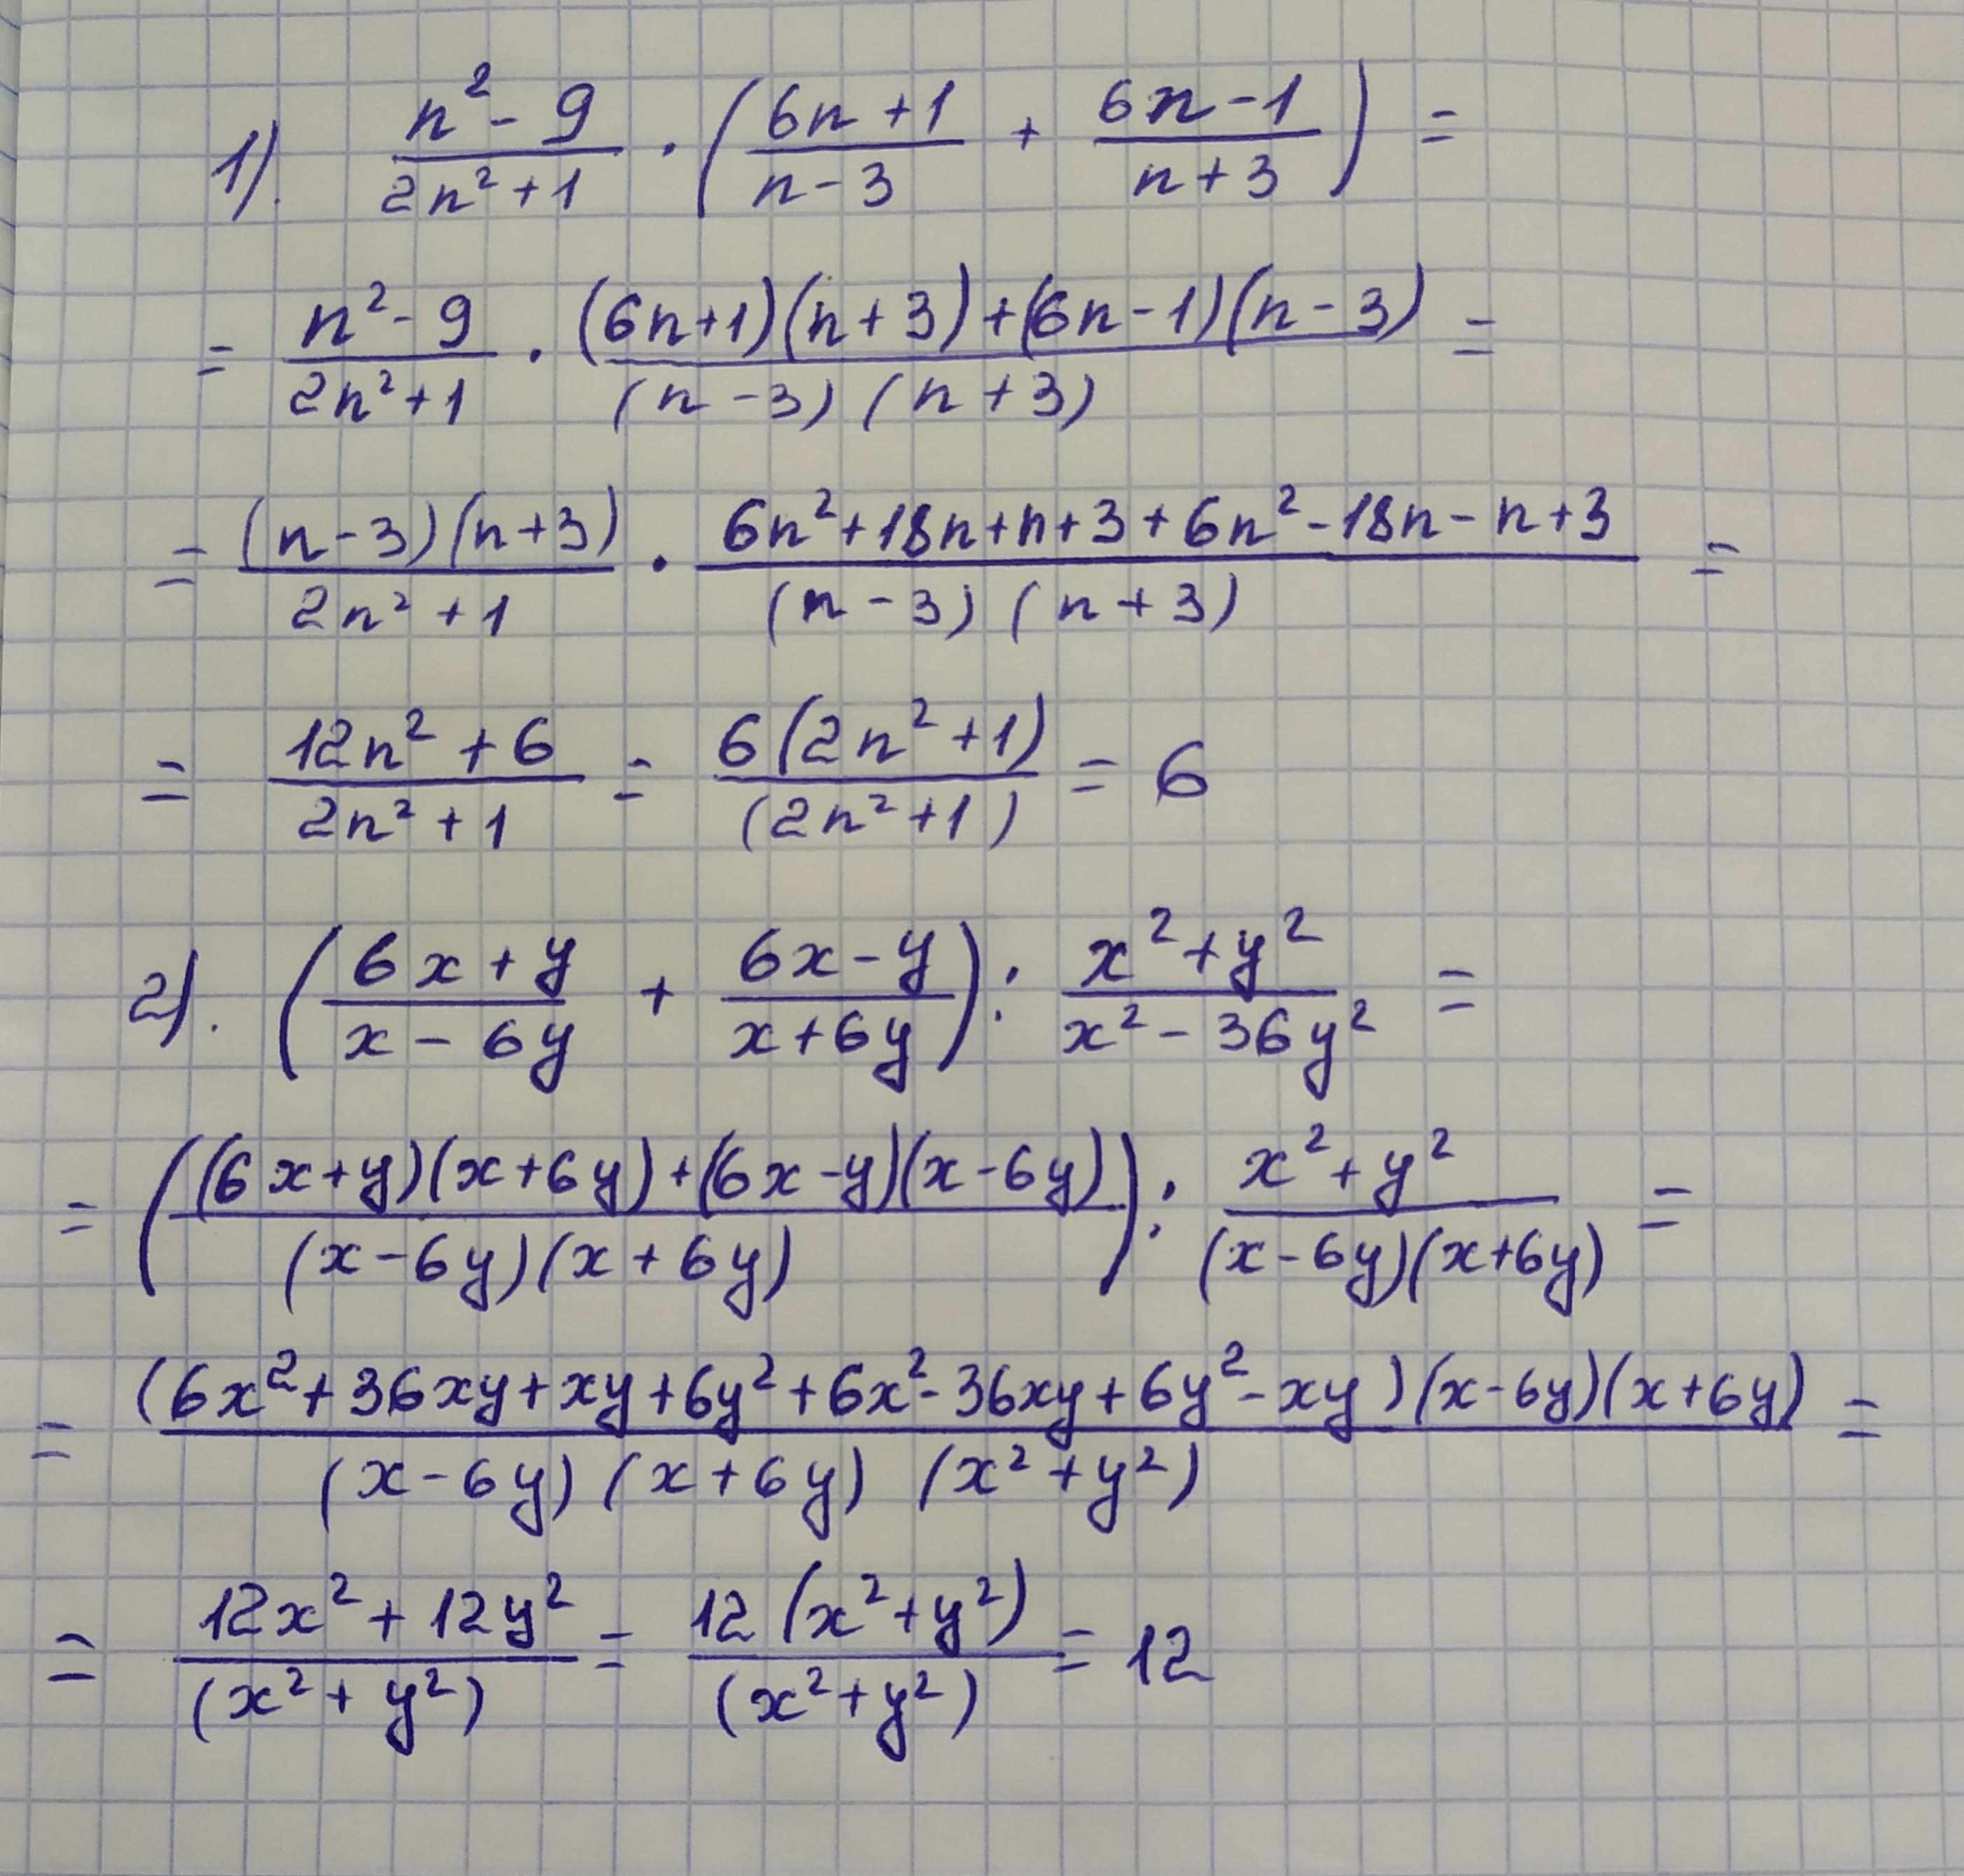 1). (n² - 9)/(2n² + 1) · ((6n + 1)/(n - 3) + (6n - 1)/(n + 3)) =
= (n² - 9)/(2n² + 1) · ((6n+1)(n+3)+(6n-1)(n-3))/((n-3)(n+3)) =
= ((n-3)(n+3))/(2n² + 1) · (6n²+18n+n+3+6n²-18n-n+3)/((n-3)(n+3)) =
= (12n² + 6)/(2n² + 1) = (6(2n² + 1))/((2n² + 1)) = 6
2). ((6x + y)/(x - 6y) + (6x - y)/(x + 6y)) : (x² + y²)/(x² - 36y²) =
= (((6x+y)(x+6y)+(6x-y)(x-6y))/((x-6y)(x+6y))) : (x² + y²)/((x-6y)(x+6y)) =
= ((6x²+36xy+xy+6y²+6x²-36xy+6y²-xy)(x-6y)(x+6y))/((x-6y)(x+6y)(x²+y²)) =
= (12x² + 12y²)/((x² + y²)) = (12(x²+y²))/((x²+y²)) = 12